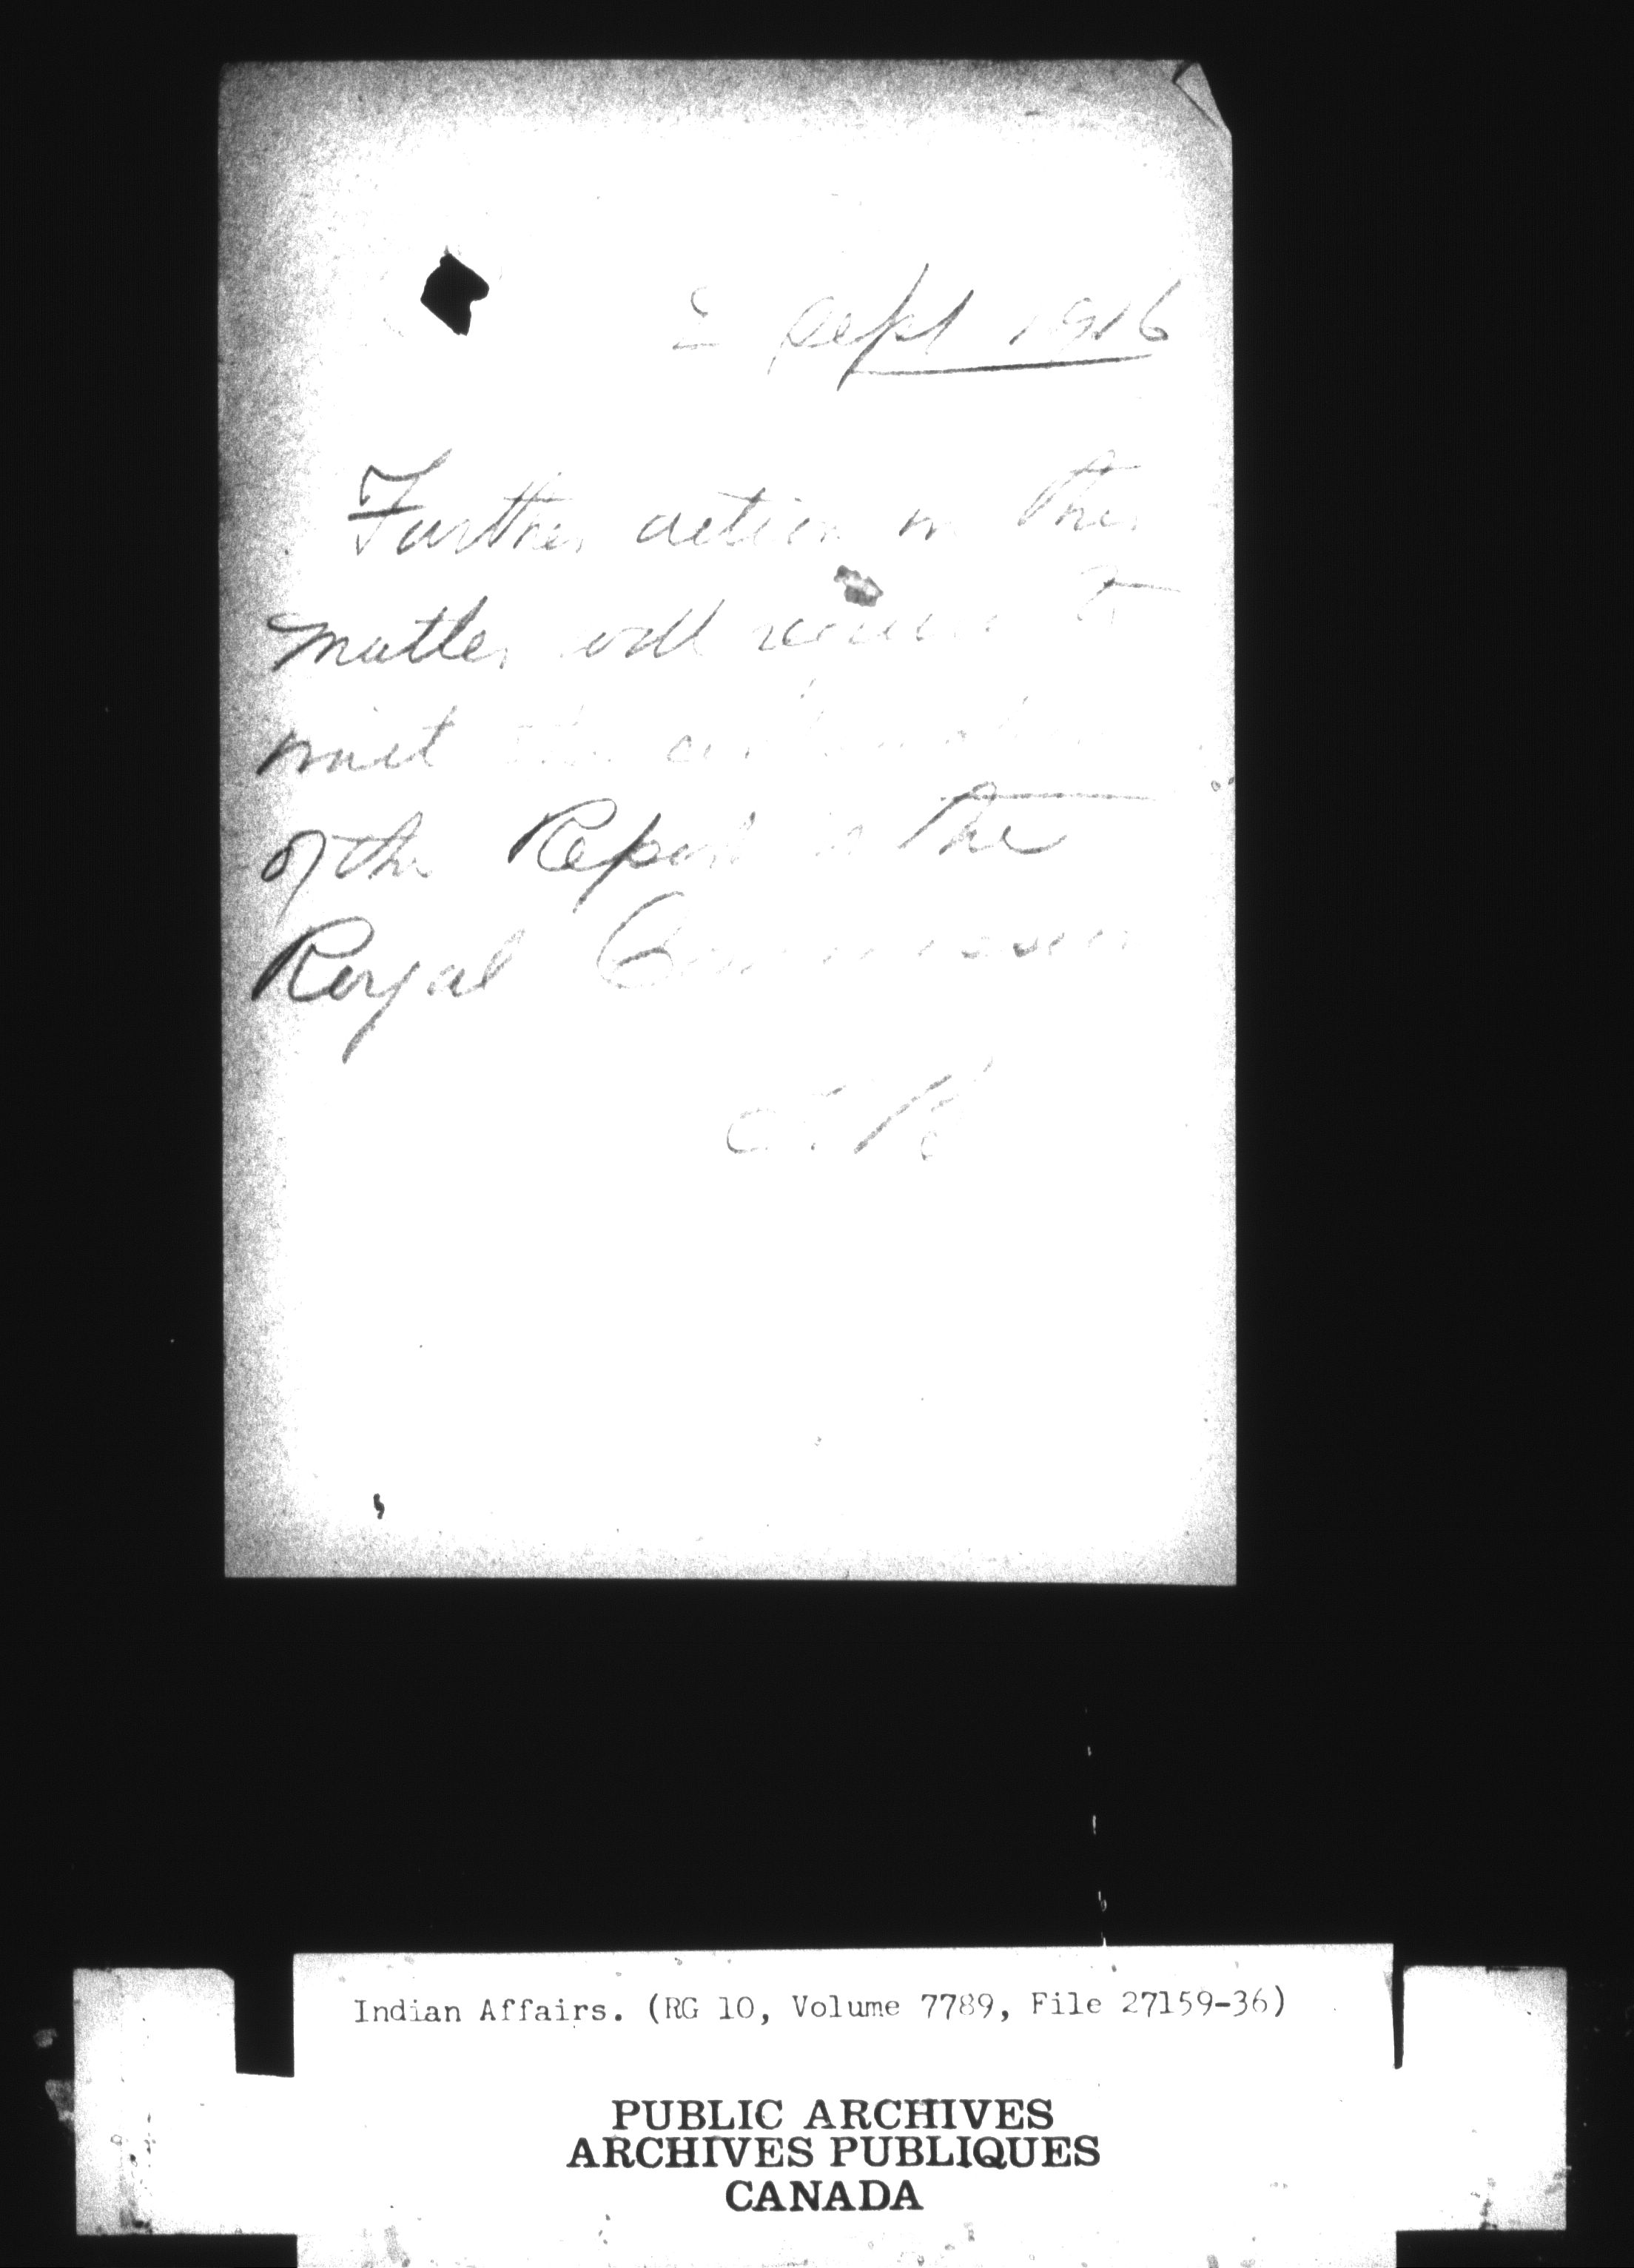 2 Sept 1916
Further action in this
matter will to
the
of the Report of the
Royal Commission
Indian Affairs. (RG 10, Volume 7789, File 27159-36)
PUBLIC ARCHIVES
ARCHIVES PUBLIQUES
CANADA